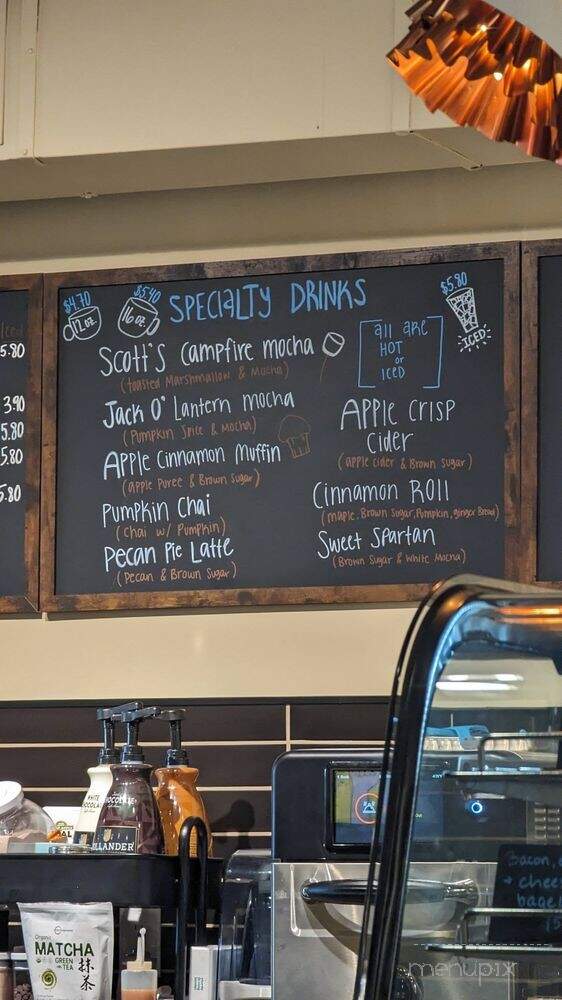 $4.70
12 oz.
$5.40
16 oz.
SPECIALTY DRINKS
$5.80
ICED
all are
HOT
or
ICED
Scott's Campfire mocha
(toasted Marshmallow & Mocha)
Jack O' Lantern mocha
(Pumpkin Spice & Mocha)
Apple Cinnamon Muffin
(apple Puree & Brown Sugar)
Pumpkin Chai
(Chai w/ Pumpkin)
Pecan Pie Latte
(Pecan & Brown Sugar)
Apple Crisp
Cider
(apple Cider & Brown Sugar)
Cinnamon Roll
(maple, Brown Sugar, Pumpkin, ginger Bread)
Sweet Spartan
(Brown Sugar & White Mocha)
Iced
5.80
3.90
5.80
5.80
5.80
WHITE
Organic
MATCHA
GREEN
TEA
抹
茶
Bacon, e
+ chee
bagel
menupix